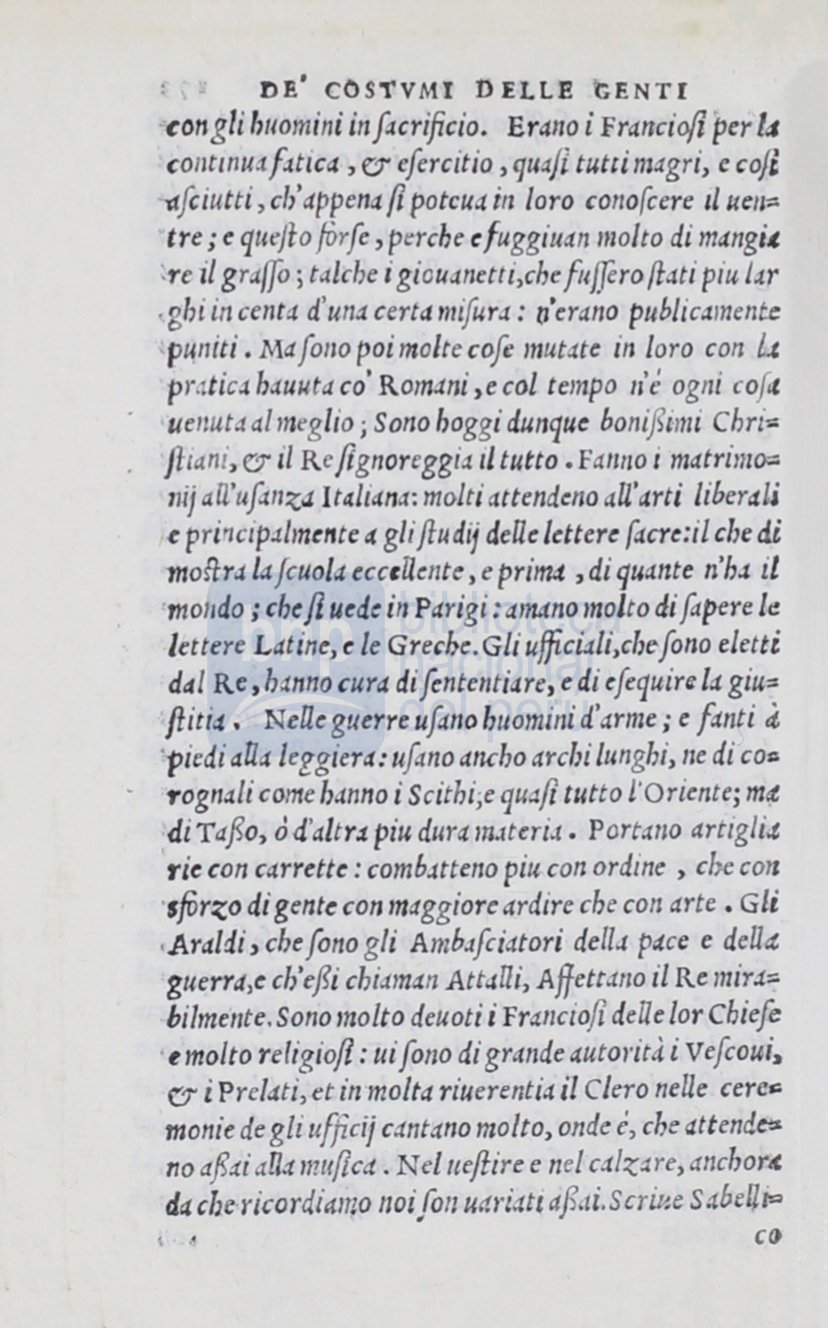 DE' COSTVMI DELLE GENTI
con gli huomini in ſacrificio. Erano i Francioſi per la
continua fatica, & eſercitio, quaſi tutti magri, e coſi
aſciutti, ch'appena ſi poteua in loro conoſcere il uen=
tre; e queſto forſe, perche eſuggiuan molto di mangia
re il graſſo; talche i giouanetti, che fuſſero ſtati piu lar
ghi in centa d'una certa miſura: n'erano publicamente
puniti. Ma ſono poi molte coſe mutate in loro con la
pratica hauuta co' Romani, e col tempo n'é ogni coſa
uenuta al meglio; Sono hoggi dunque bonißimi Chri=
ſtiani, & il Re ſignoreggia il tutto. Fanno i matrimo=
nij all'uſanza Italiana: molti attendeno all'arti liberali
e principalmente a gli ſtudij delle lettere ſacre: il che di
moſtra la ſcuola eccellente, e prima, di quante n'ha il
mondo; che ſi uede in Parigi: amano molto di ſapere le
lettere Latine, e le Greche. Gli ufficiali, che ſono eletti
dal Re, hanno cura di ſententiare, e di eſequire la giu=
ſtitia. Nelle guerre uſano huomini d'arme; e fanti à
piedi alla leggiera: uſano ancho archi lunghi, ne di co=
rognali come hanno i Scithi, e quaſi tutto l'Oriente; ma
di Taßo, ò d'altra piu dura materia. Portano artiglia
rie con carrette: combatteno piu con ordine, che con
sforzo di gente con maggiore ardire che con arte. Gli
Araldi, che ſono gli Ambaſciatori della pace e della
guerra, e ch'eßi chiaman Attalli, Affettano il Re mira=
bilmente. Sono molto deuoti i Francioſi delle lor Chieſe
e molto religioſi: ui ſono di grande autorità i Veſcoui,
& i Prelati, et in molta riuerentia il Clero nelle cere=
monie de gli ufficij cantano molto, onde é, che attende=
no aßai alla muſica. Nel ueſtire e nel calzare, anchora
da che ricordiamo noi ſon uariati aßai. Scriue Sabelli=
co
biblioteca
nacional
del perú